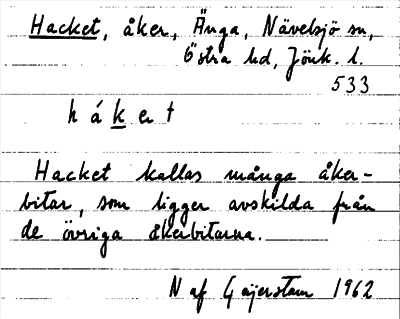 Hacket, åker, Änga, Nävelsjö sn,
Östra hd, Jönk. l.
533
h á k e t
Hacket kallas många åker-
bitar, som ligger avskilda från
de övriga åkerbitarna.
N af Geijerstam 1962